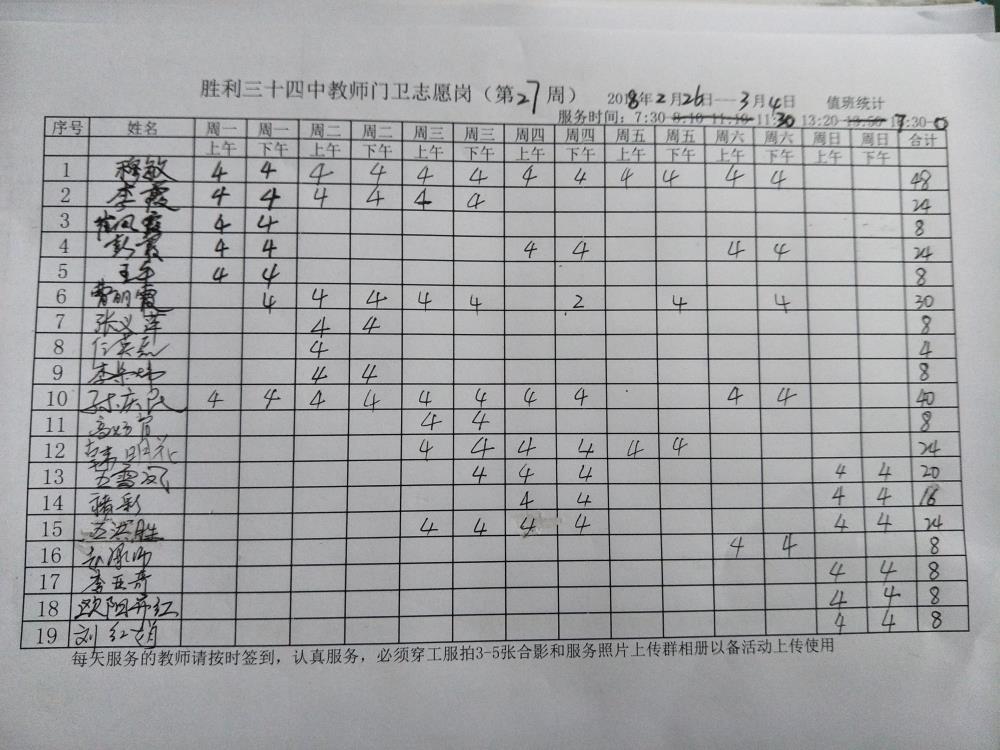 胜利三十四中教师门卫志愿岗（第27周） 2018年2月26日---3月4日 值班统计
服务时间：7:30 8:10 11:10 11:30 13:20 13:50 17:30-0
序号 姓名 周一 周一 周二 周二 周三 周三 周四 周四 周五 周五 周六 周六 周日 周日 合计
上午 下午 上午 下午 上午 下午 上午 下午 上午 下午 上午 下午 上午 下午
1 穆敏 4 4 4 4 4 4 4 4 4 4 4 4 48
2 李霞 4 4 4 4 4 4 24
3 崔凤霞 4 4 8
4 彭霞 4 4 4 4 4 4 24
5 4 4 8
6 曹明霞 4 4 4 4 4 2 4 4 30
7 张义萍 4 4 8
8 任英磊 4 4
9 4 4 8
10 孙庆民 4 4 4 4 4 4 4 4 4 4 40
11 4 4 8
12 韩明花 4 4 4 4 4 4 24
13 王雪凤 4 4 4 4 4 20
14 4 4 4 4 16
15 王洪胜 4 4 4 4 4 4 24
16 4 4 8
17 李亚奇 4 4 8
18 4 4 8
19 刘红 4 4 8
每天服务的教师请按时签到，认真服务，必须穿工服拍3-5张合影和服务照片上传群相册以备活动上传使用